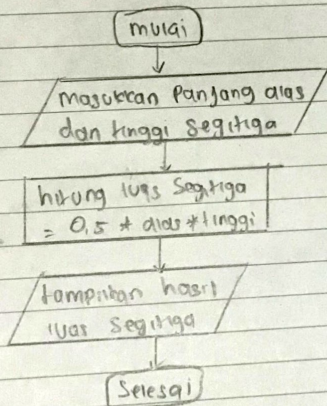 mulai
masukkan Panjang alas
dan tinggi segitiga
hitung luas Segitiga
= 0,5 * alas * tinggi
tampilkan hasil
luas segitiga
Selesai